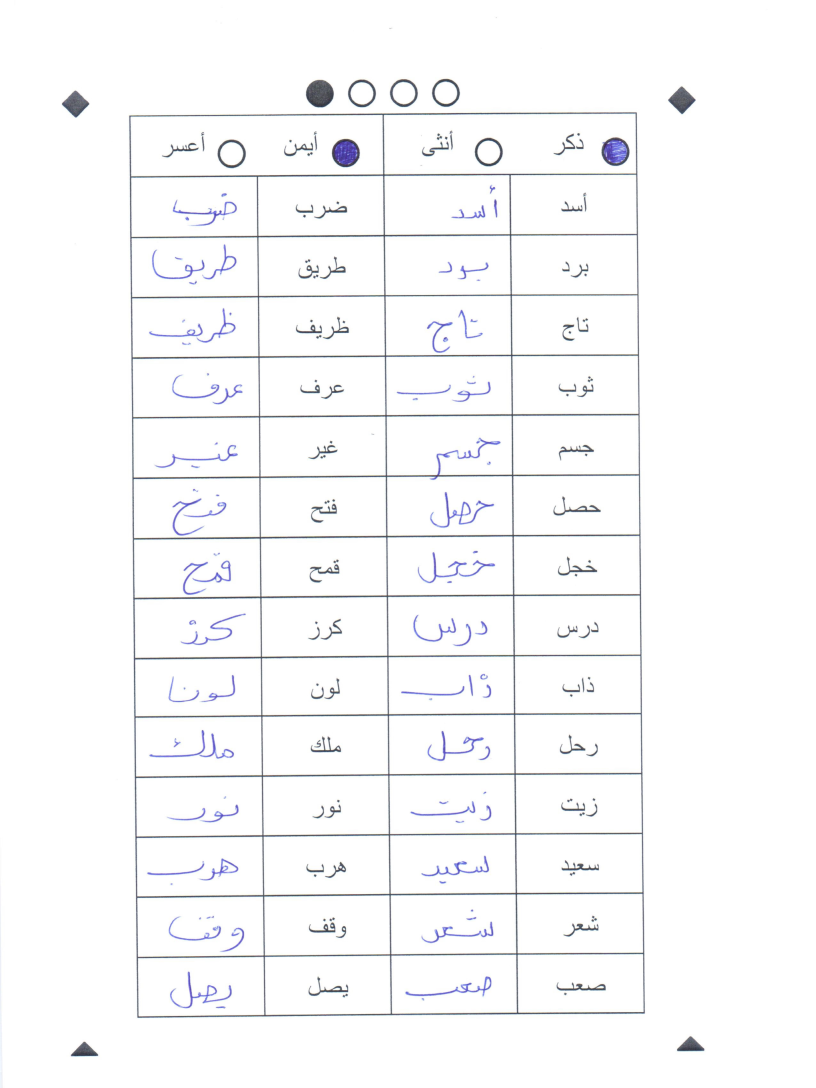 ذكر أنثى أيمن أعسر
أسد أسد ضرب ضرب
برد برد طريق طريق
تاج تاج ظريف ظريف
ثوب ثوب عرف عرف
جسم جسم غير غير
حصل حصل فتح فتح
خجل خجل قمح قمح
درس درس كرز كرز
ذاب ذاب لون لون
رحل رحل ملك ملك
زيت زيت نور نور
سعيد سعيد هرب هرب
شعر شعر وقف وقف
صعب صعب يصل يصل